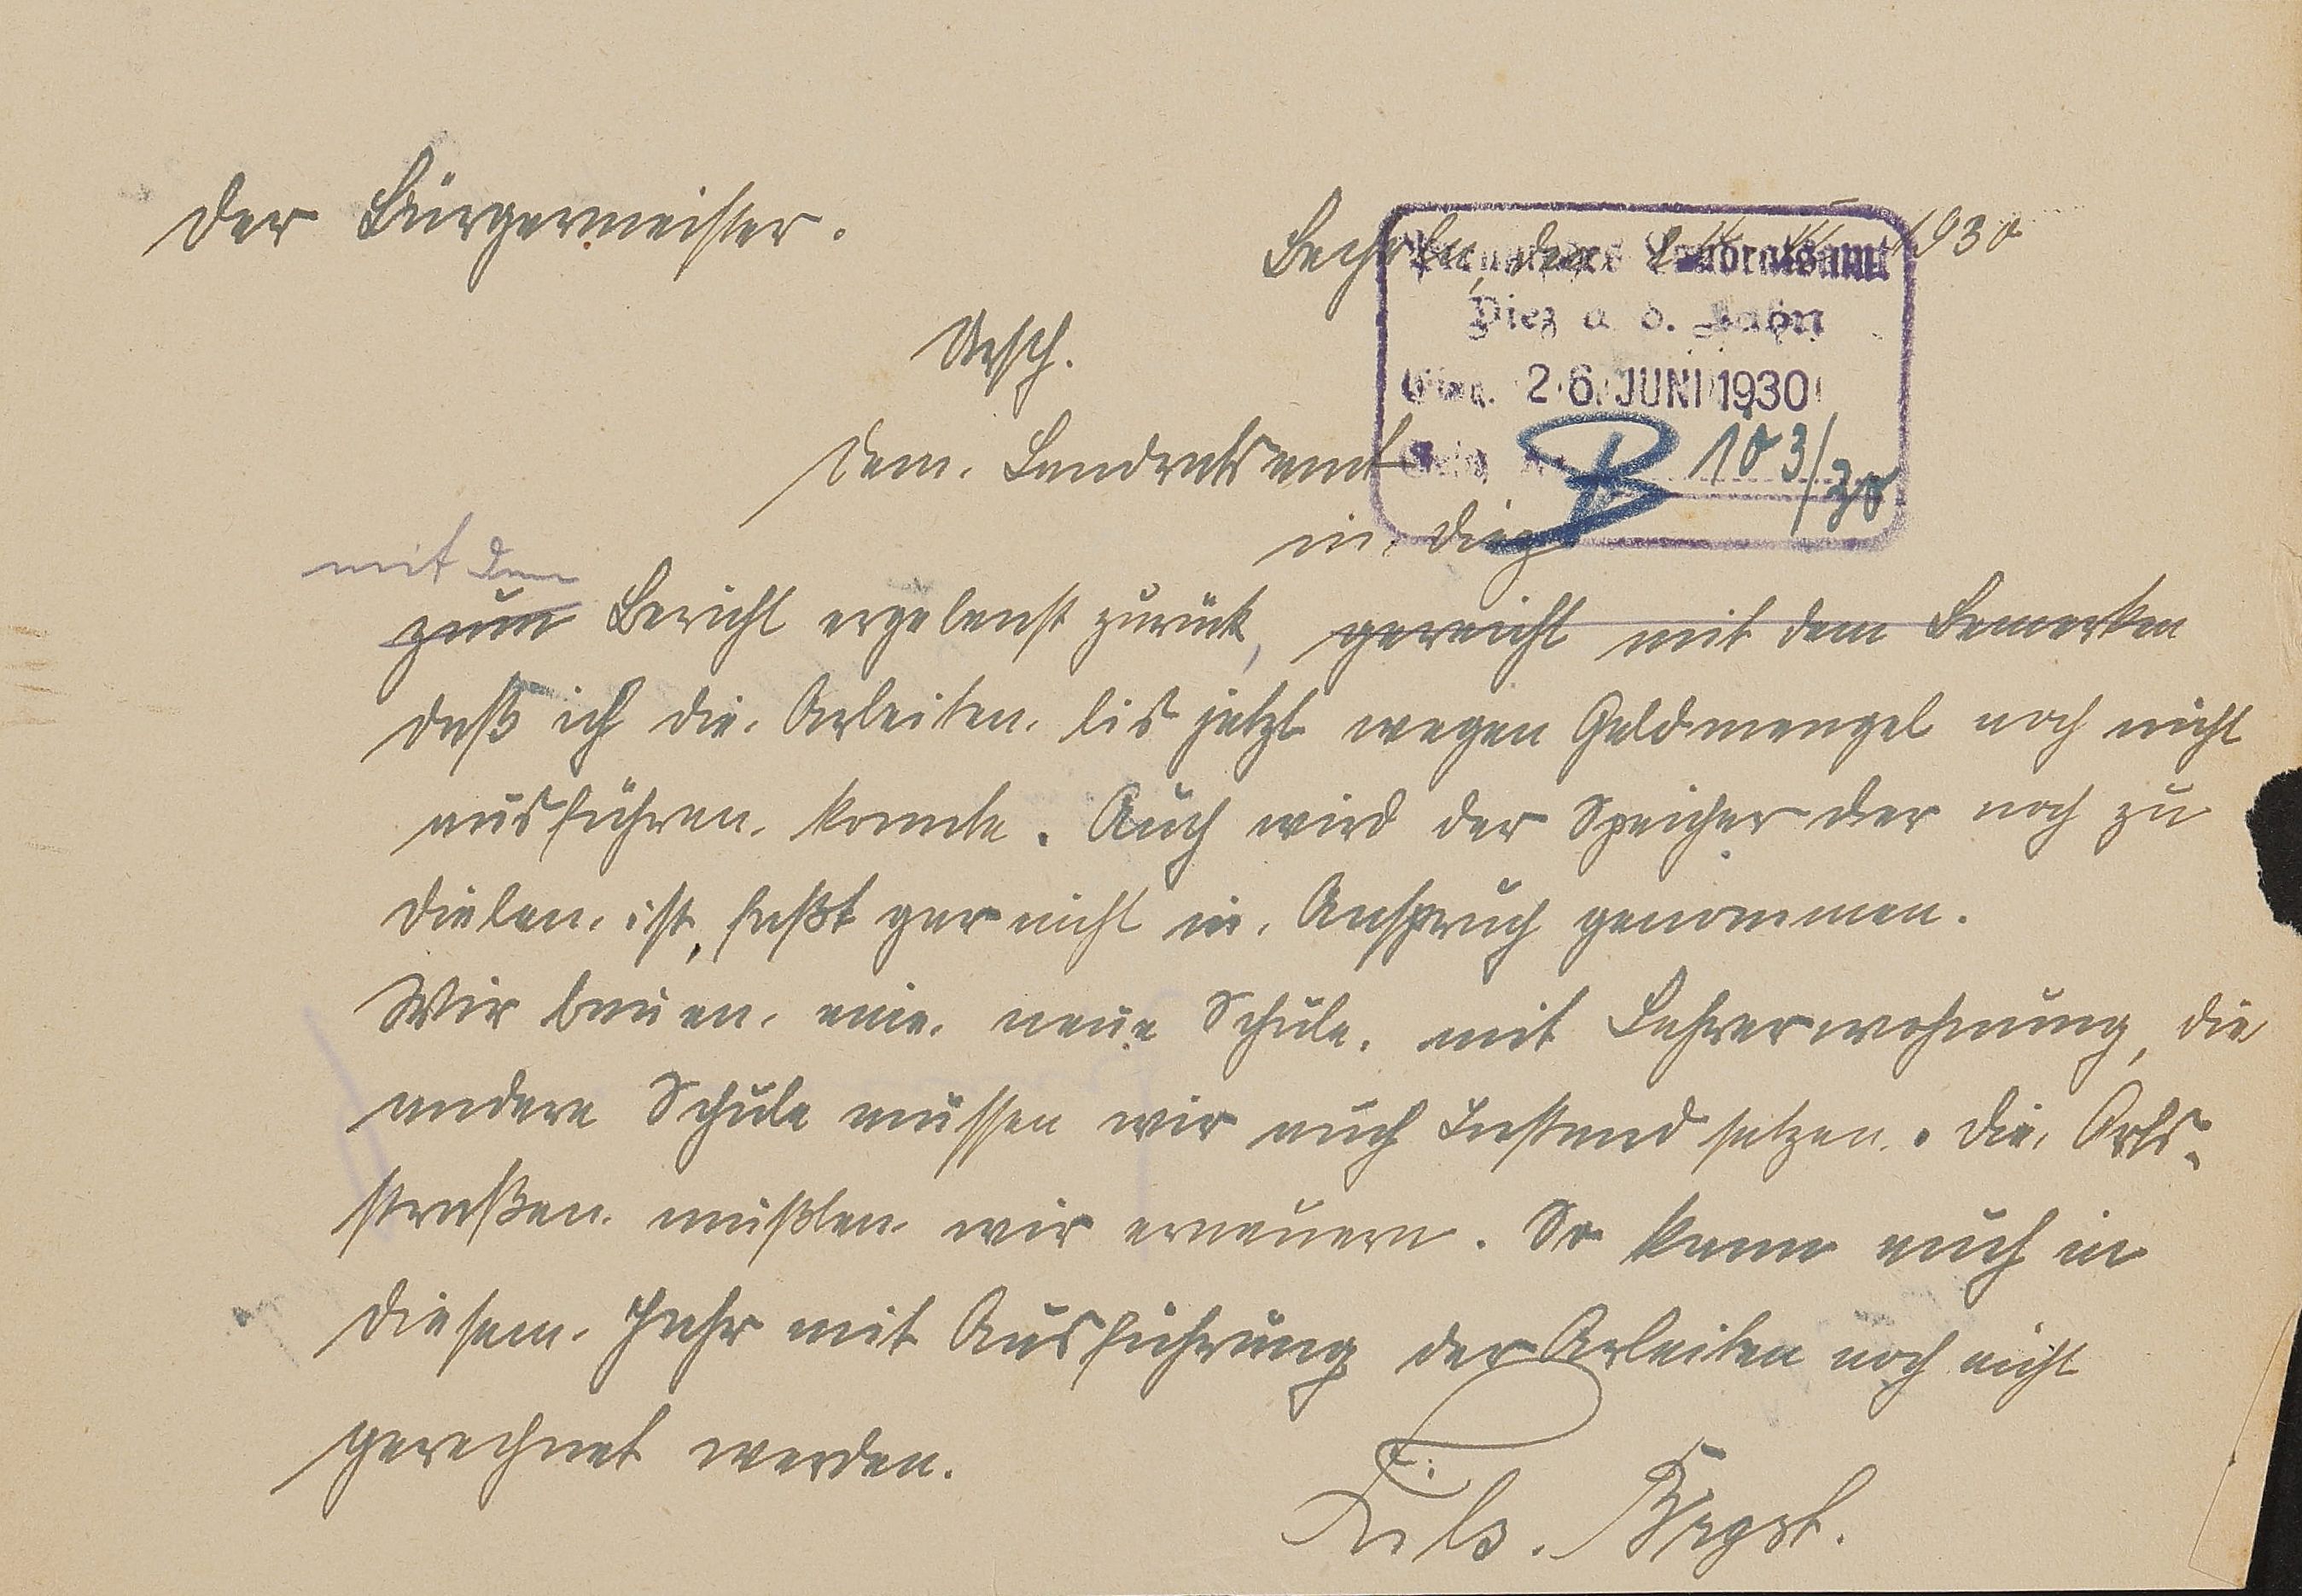 Der Bürgermeister.
Becheln, den 1930
Preußisches Landratsamt
Diez a. d. Lahn
Eing. 26. JUNI 1930
B 103/30
Ursch.
Dem Landratsamt
in Diez
mit dem
zum Bericht ergebenst zurück, gereicht mit dem Bemerken
daß ich die Arbeiten bis jetzt wegen Geldmangel noch nicht
ausführen konnte. Auch wird der Speicher der noch zu
dielen ist, faßt gar nicht in Anspruch genommen.
Wir bauen eine neue Schule mit Lehrerwohnung, die
andere Schule müssen wir auch Instand setzen. Die Orts-
straßen mußten wir erneuern. So kann auch in
diesem Jahr mit Ausführung der Arbeiten noch nicht
gerechnet werden.
Brgst.